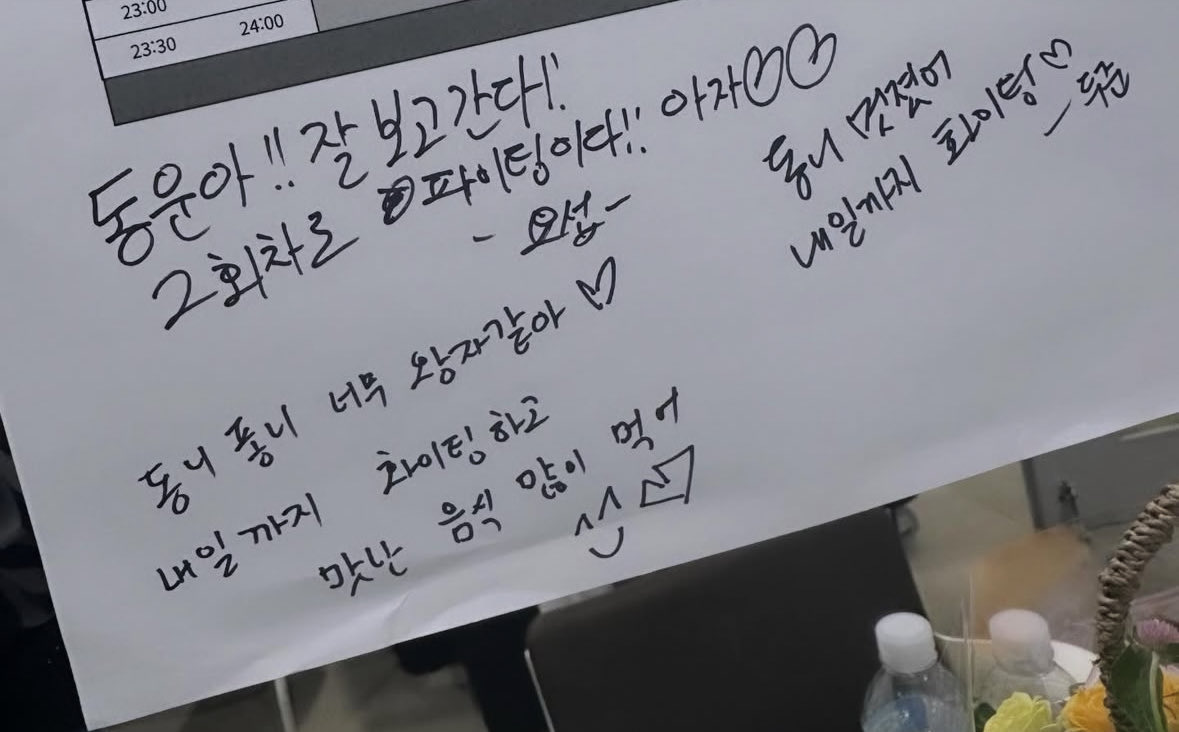 23:00
23:30 24:00
동운아!! 잘 보고간다!!
2회차로 파이팅이다!! 아자♡♡
- 요섭 -
동니 멋졌어
내일까지 화이팅♡
- 두준
동니 퐁니 너무 왕자같아 ♡
내일까지 화이팅하고
맛난 음식 많이 먹어